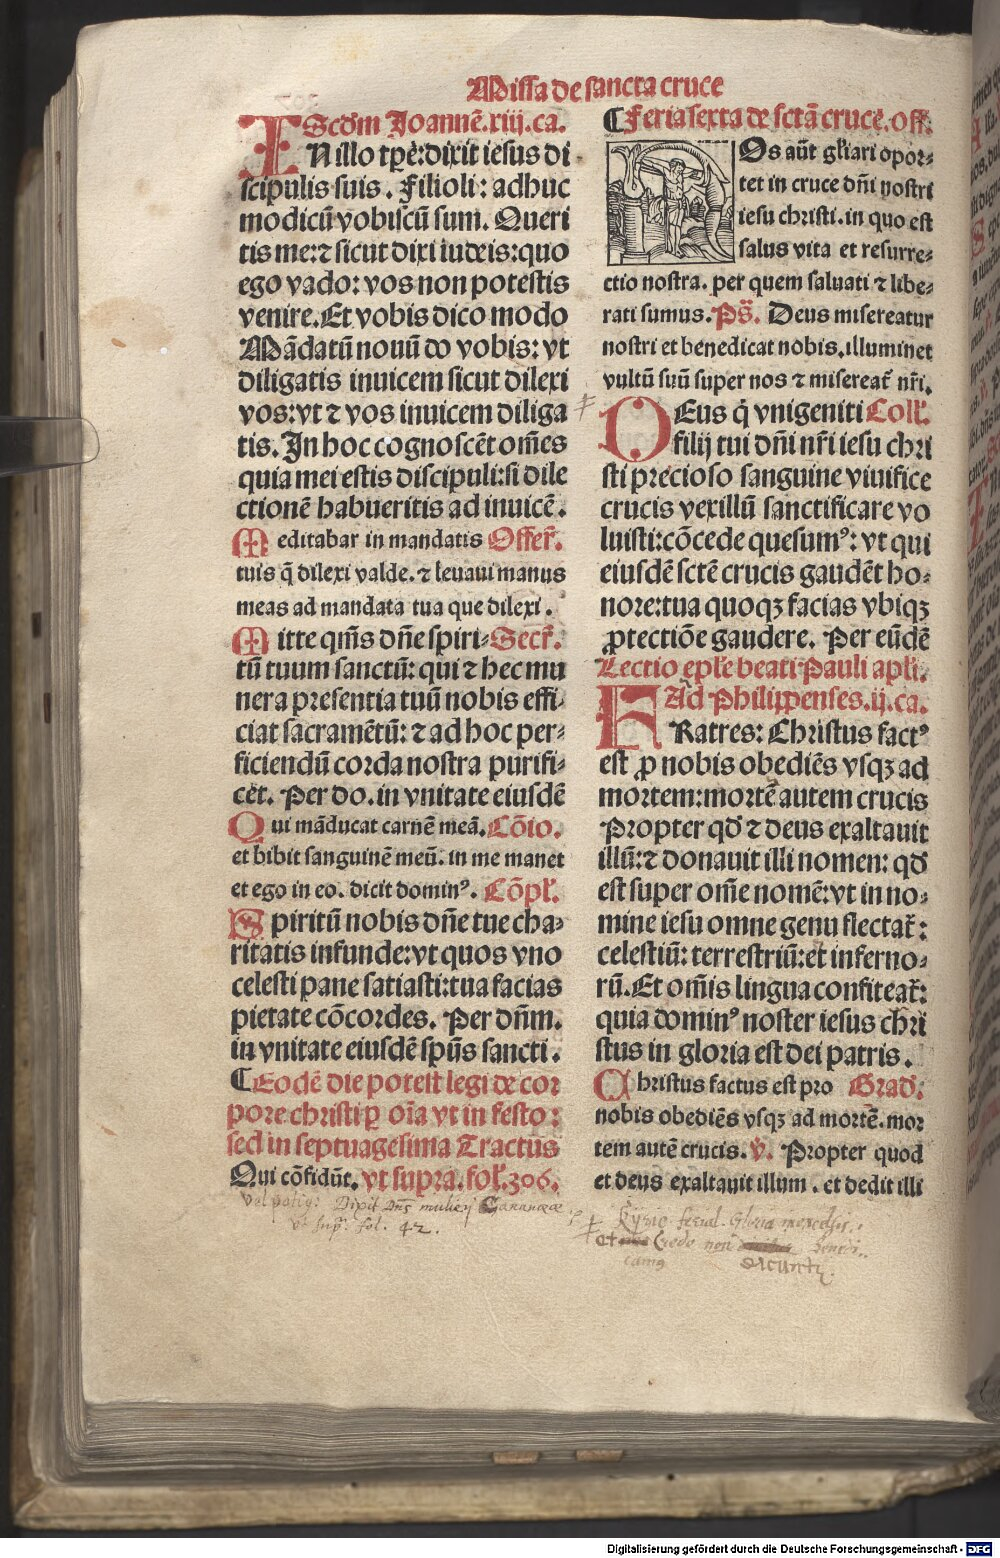 Missa de sancta cruce
Scd̄m Joannē.xiij.ca.
IN illo tp̄e: dixit iesus di
scipulis suis. Filioli: adhuc
modicū vobiscū sum. Queri
tis me: ⁊ sicut dixi iudeis: quo
ego vado: vos non potestis
venire. Et vobis dico modo
Mādatū nouū do vobis: vt
diligatis inuicem sicut dilexi
vos: vt ⁊ vos inuicem diliga
tis. In hoc cognoscēt om̄es
quia mei estis discipuli: si dile
ctionē habueritis ad inuicē.
Meditabar in mandatis Offer̄.
tuis q̄ dilexi valde. ⁊ leuaui manus
meas ad mandata tua que dilexi.
Mitte qm̄s dn̄e spiri⸗ Secr̄.
tū tuum sanctū: qui ⁊ hec mu
nera presentia tuū nobis effi⸗
ciat sacramētū: ⁊ ad hoc per⸗
ficiendū corda nostra purifi⸗
cet. Per do. in vnitate eiusdē
Qui māducat carnē meā. Cōio.
et bibit sanguinē meū. in me manet
et ego in eo. dicit dominꝰ. Cōpl̄.
Spiritū nobis dn̄e tue cha⸗
ritatis infunde: vt quos vno
celesti pane satiasti: tua facias
pietate cōcordes. Per dn̄m.
in vnitate eiusdē spūs sancti.
¶ Eodē die potest legi de cor
pore christi ꝑ oīa vt in festo:
sed in septuagesima Tractus
Qui cōfidūt. vt supra. fol. 306.
vel potiꝰ: Dixit Dn̄s mulieri Cananeæ
vt supᵃ fol. 42.
¶ Feria sexta de sctā cruce. Off.
NOs aūt gl̄iari opor⸗
tet in cruce dn̄i nostri
iesu christi. in quo est
salus vita et resurre⸗
ctio nostra. per quem saluati ⁊ libe⸗
rati sumus. Ps̄. Deus misereatur
nostri et benedicat nobis. illuminet
vultū suū super nos ⁊ misereat̄ nr̄i.
DEus q̄ vnigeniti Coll̄.
filij tui dn̄i nr̄i iesu chri
sti precioso sanguine viuifice
crucis vexillū sanctificare vo
luisti: cōcede quesumꝰ: vt qui
eiusdē sctē crucis gaudēt ho⸗
nore: tua quoqꝫ facias vbiqꝫ
ꝓtectiōe gaudere. Per eūdē
Lectio epl̄e beati Pauli apl̄i.
Ad Philippenses. ij. ca.
FRatres: Christus factꝰ
est ꝓ nobis obediēs vsqꝫ ad
mortem: mortē autem crucis
Propter qd̄ ⁊ deus exaltauit
illū: ⁊ donauit illi nomen: qd̄
est super om̄e nomē: vt in no⸗
mine iesu omne genu flectat̄:
celestiū: terrestriū: et inferno⸗
rū. Et om̄is lingua confiteat̄:
quia dominꝰ noster iesus chri
stus in gloria est dei patris.
Christus factus est pro Grad̄.
nobis obediēs vsqꝫ ad mortē. mor
tem autē crucis. ℣. Propter quod
et deus exaltauit illum. et dedit illi
Kyrie Gloria in excelsis
et Credo non
dicuntꝛ
Digitalisierung gefördert durch die Deutsche Forschungsgemeinschaft - DFG